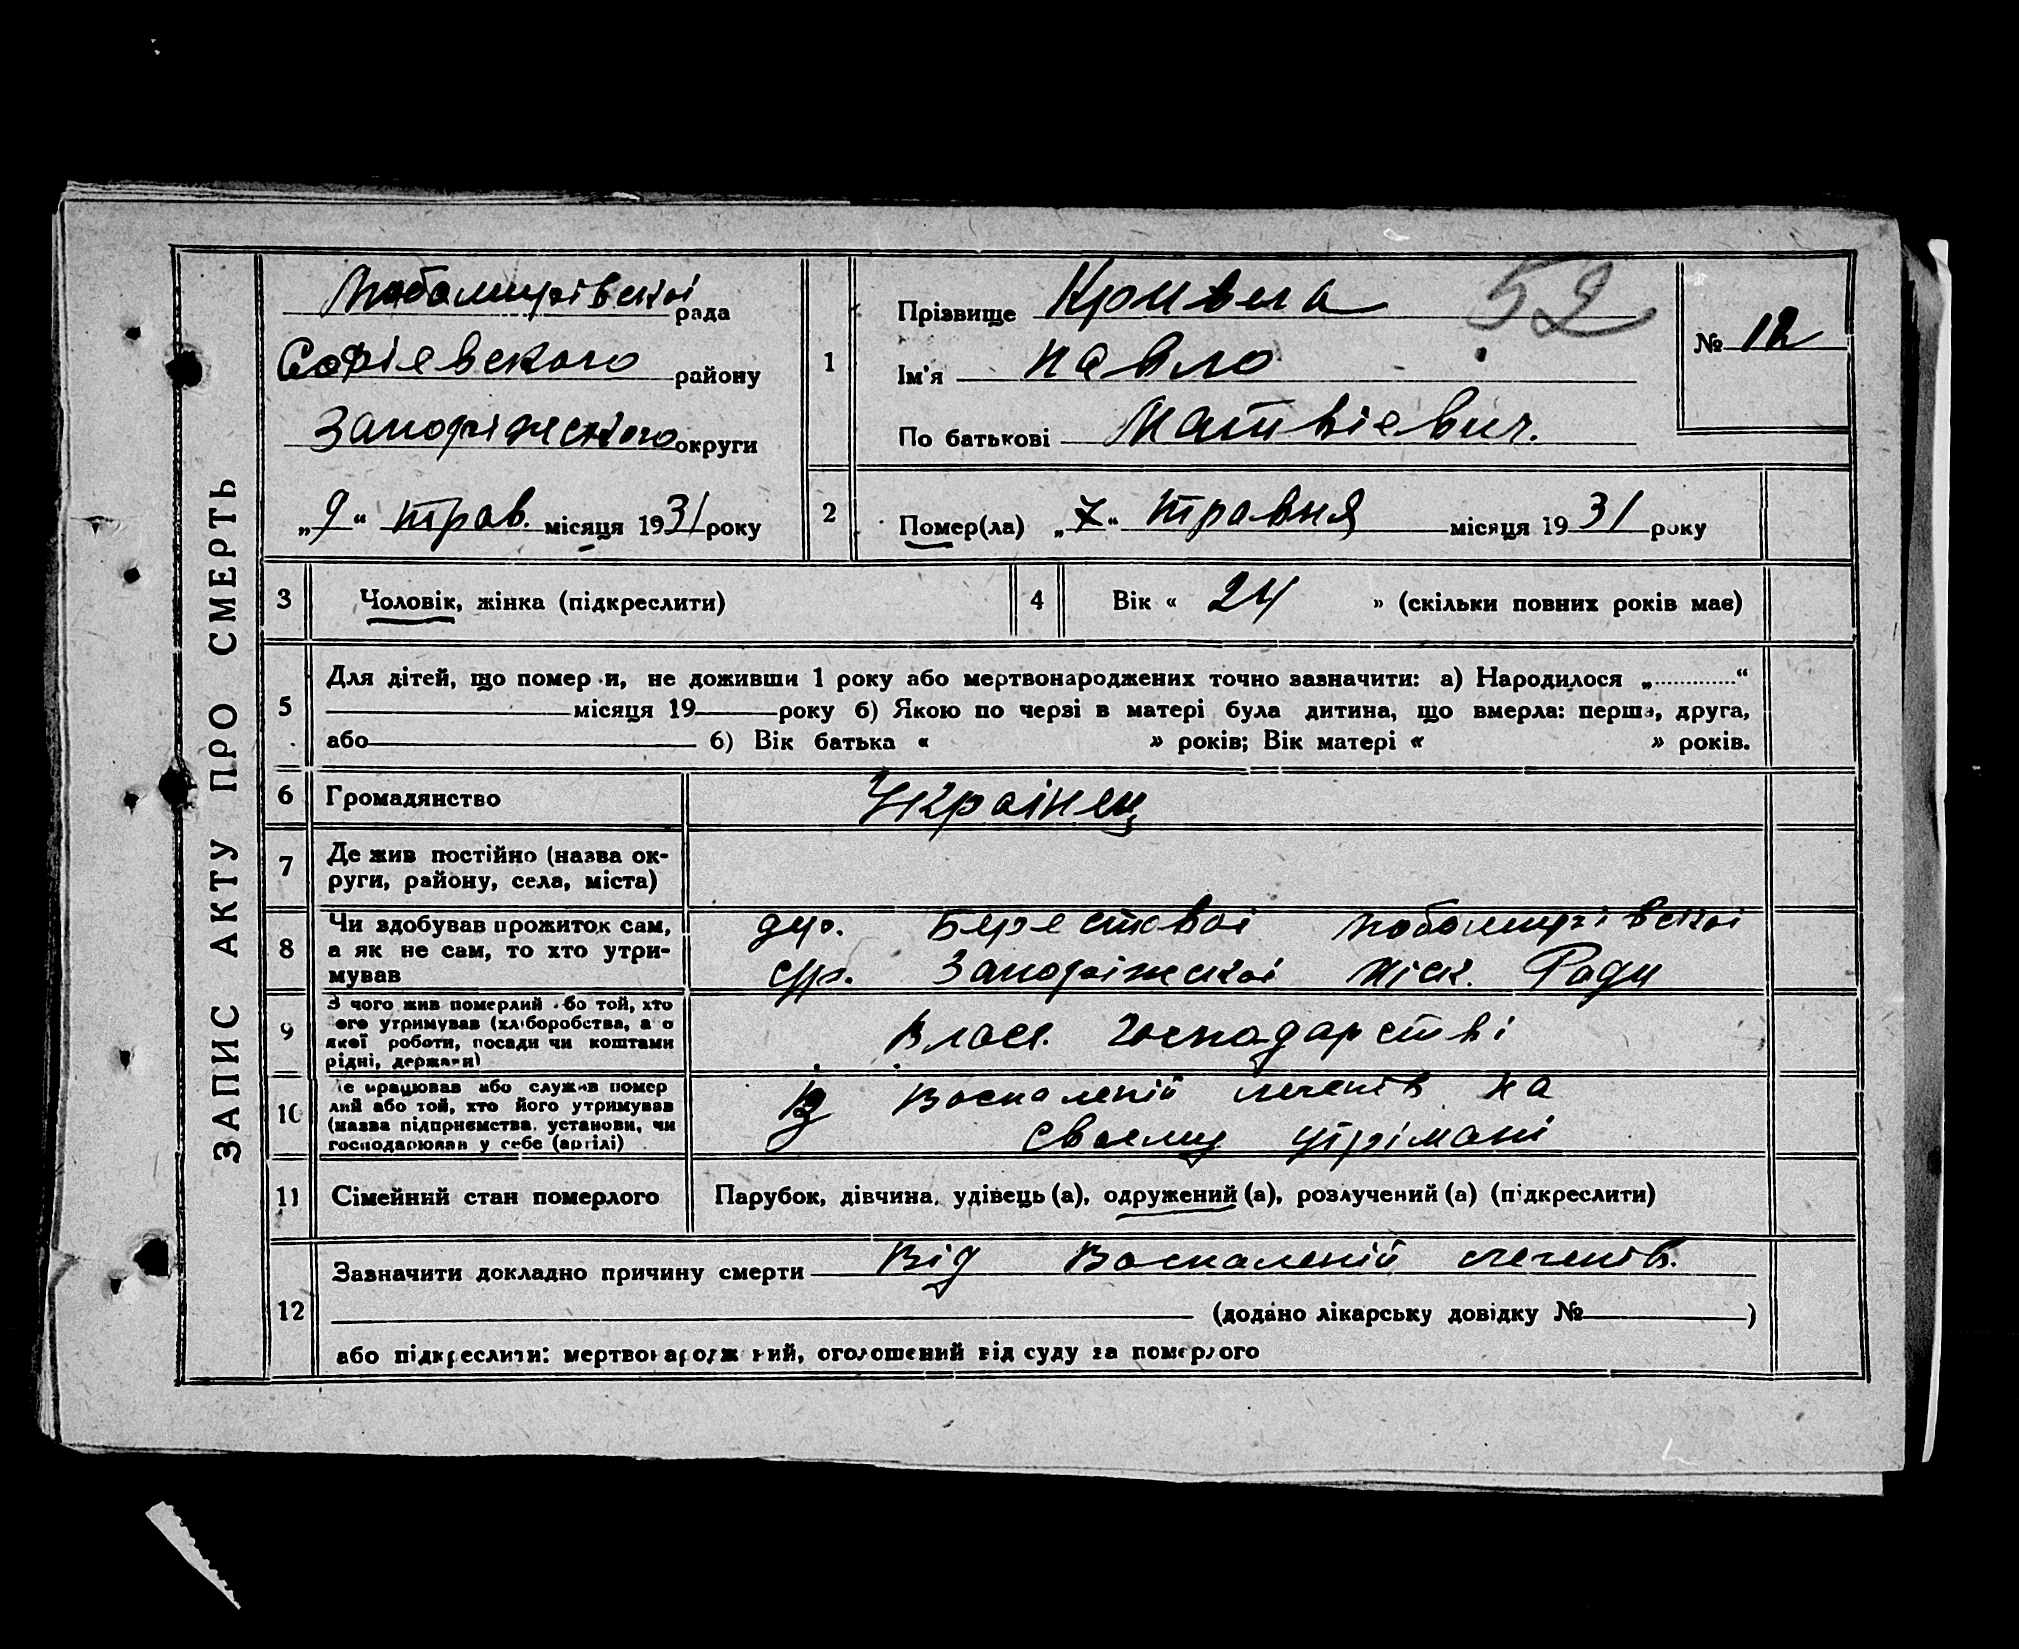 ЗАПИС АКТУ ПРО СМЕРТЬ
Любомирівскоі рада
Софіевского району
Запоріжского округи
„9“ трав. місяця 1931 року
1
Прізвище Кривега
52
Ім'я Павло
По батькові Матвіевич.
№ 12
2
Помер(ла) „7“ травня місяця 1931 року
3 Чоловік, жінка (підкреслити)
4 Вік « 24 » (скільки повних років має)
5
Для дітей, що помер и, не доживши 1 року або мертвонароджених точно зазначити: а) Народилося „ “
місяця 19 року б) Якою по черзі в матері була дитина, що вмерла: перша, друга,
або б) Вік батька « » років; Вік матері « » років.
6 Громадянство Украінец
7
Де жив постійно (назва ок-
руги, району, села, міста)
8
Чи здобував прожиток сам,
а як не сам, то хто утри-
мував
дер. Берестовоі Любомирівскоі
с/р. Запоріжскоі міск. Ради
9
З чого жив померлий або той, хто
його утримував (хліборобства, а о
якої роботи, посади чи коштами
рідні, держави)
Власн. господарстві
10
Де працював або служив помер
лий або той, хто його утримував
(назва підприємства, установи, чи
господарював у себе (артілі)
Воспаленій легенів на
своему утрімані
11 Сімейний стан померлого Парубок, дівчина, удівець (а), одружений (а), розлучений (а) (підкреслити)
12
Зазначити докладно причину смерти Від Воспаленій легенів.
(додано лікарську довідку № )
або підкреслити: мертвонароджений, оголошений від суду за померлого